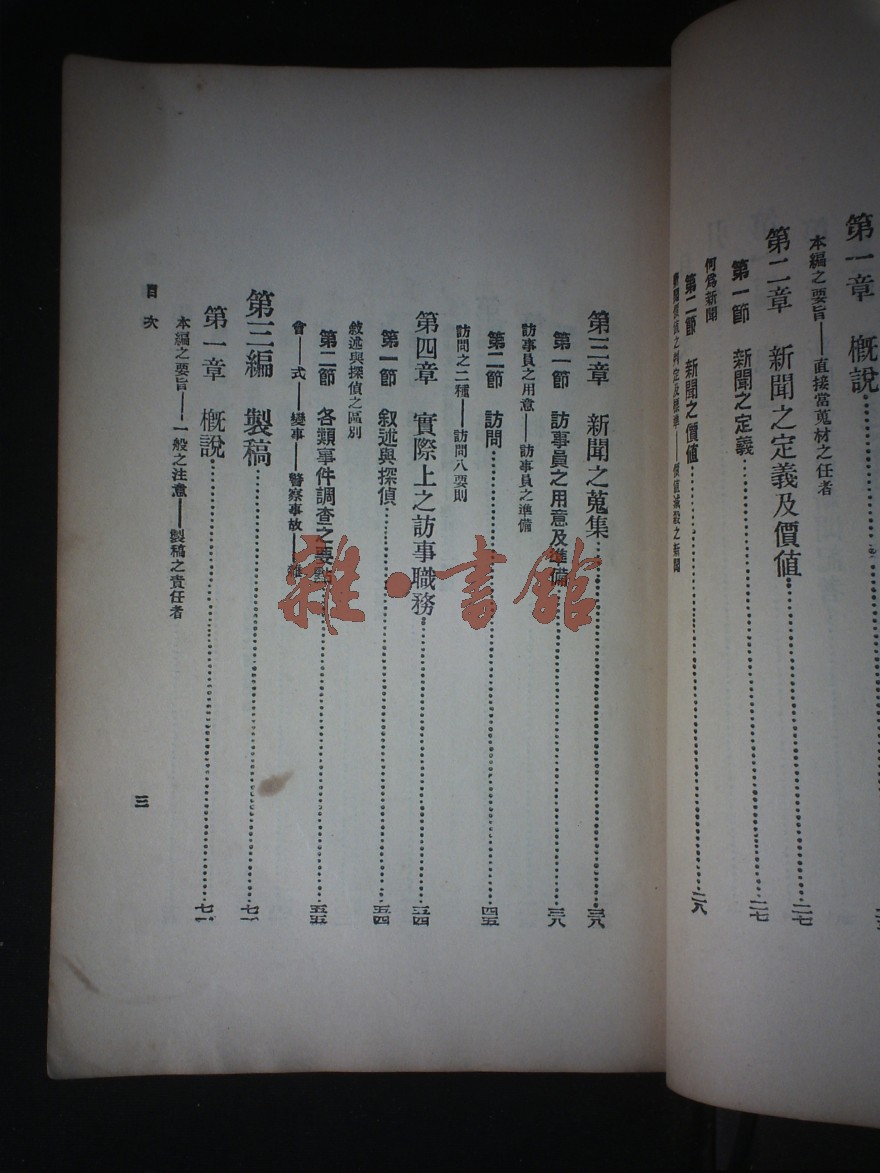 第一章 概說
本編之要旨——直接當蒐材之任者
第二章 新聞之定義及價値 二七
第一節 新聞之定義 二七
何爲新聞
第二節 新聞之價値 二八
第三章 新聞之蒐集 三八
第一節 訪事員之用意及準備 三八
訪事員之用意——訪事員之準備
第二節 訪問 四五
訪問之二種——訪問八要則
第四章 實際上之訪事職務 五四
第一節 叙述與探偵 五四
敘述與探偵之區別
第二節 各類事件調查之要點 五五
會——式——變事——警察事故——雜
第三編 製稿 七一
第一章 概說 七一
本編之要旨——一般之注意——製稿之責任者
目次
三
雜·書館